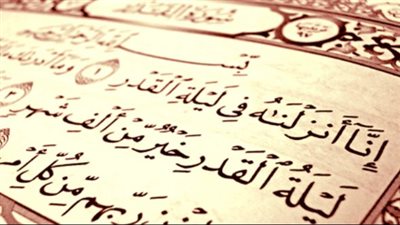 سُورَةُ القَدْرِ
بِسْمِ اللَّهِ الرَّحْمَٰنِ الرَّحِيمِ
إِنَّآ أَنزَلْنَٰهُ فِى لَيْلَةِ ٱلْقَدْرِ ١ وَمَآ
لَيْلَةُ ٱلْقَدْرِ خَيْرٌ مِّنْ أَلْفِ شَهْرٍ ٣
رَبِّهِم مِّن كُلِّ